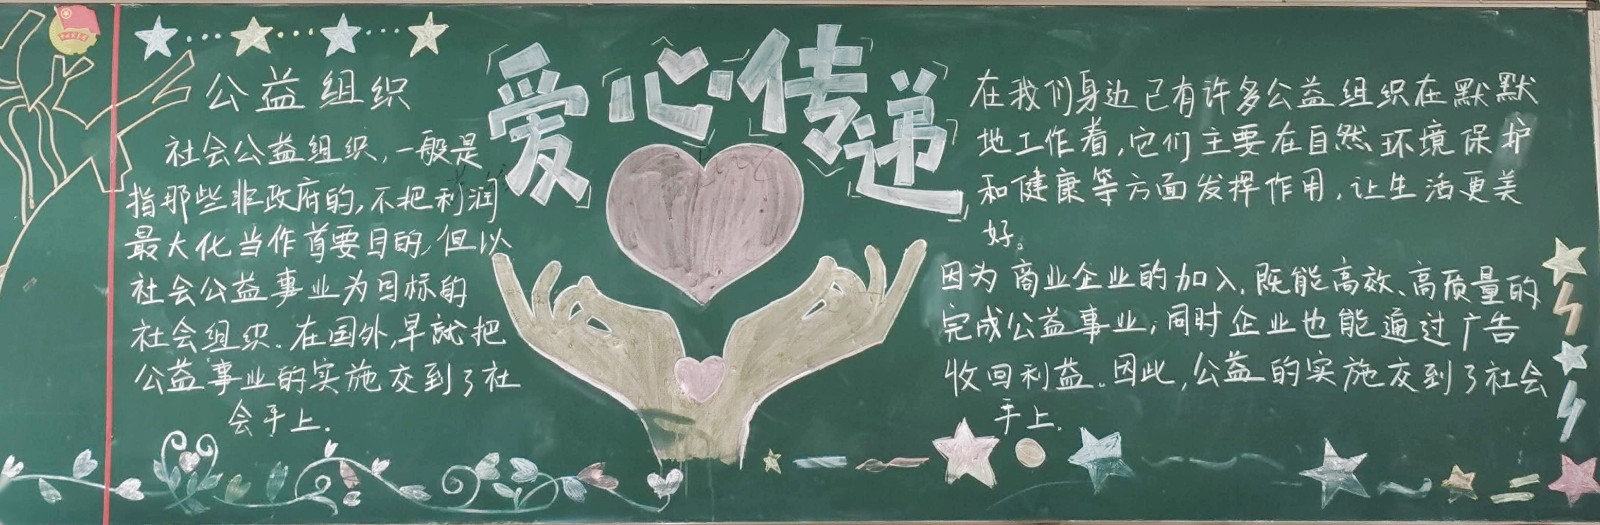 公益组织
社会公益组织，一般是
指那些非政府的，不把利润
最大化当作首要目的，但以
社会公益事业为目标的
社会组织．在国外，早就把
公益事业的实施交到了社
会手上．
爱心传递
在我们身边已有许多公益组织在默默
地工作着，它们主要在自然环境保护
和健康等方面发挥作用，让生活更美
好。
因为商业企业的加入，既能高效、高质量的
完成公益事业；同时企业也能通过广告
收回利益．因此，公益的实施交到了社会
手上．